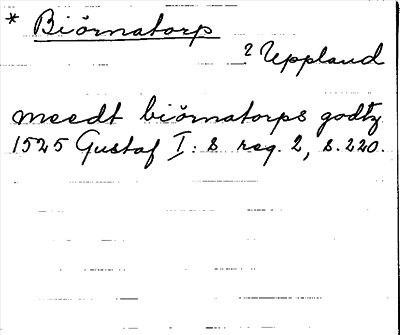 * Biörnatorp
? Uppland
meedt biörnatorps godtz
1525 Gustaf I: s reg. 2, s. 220.